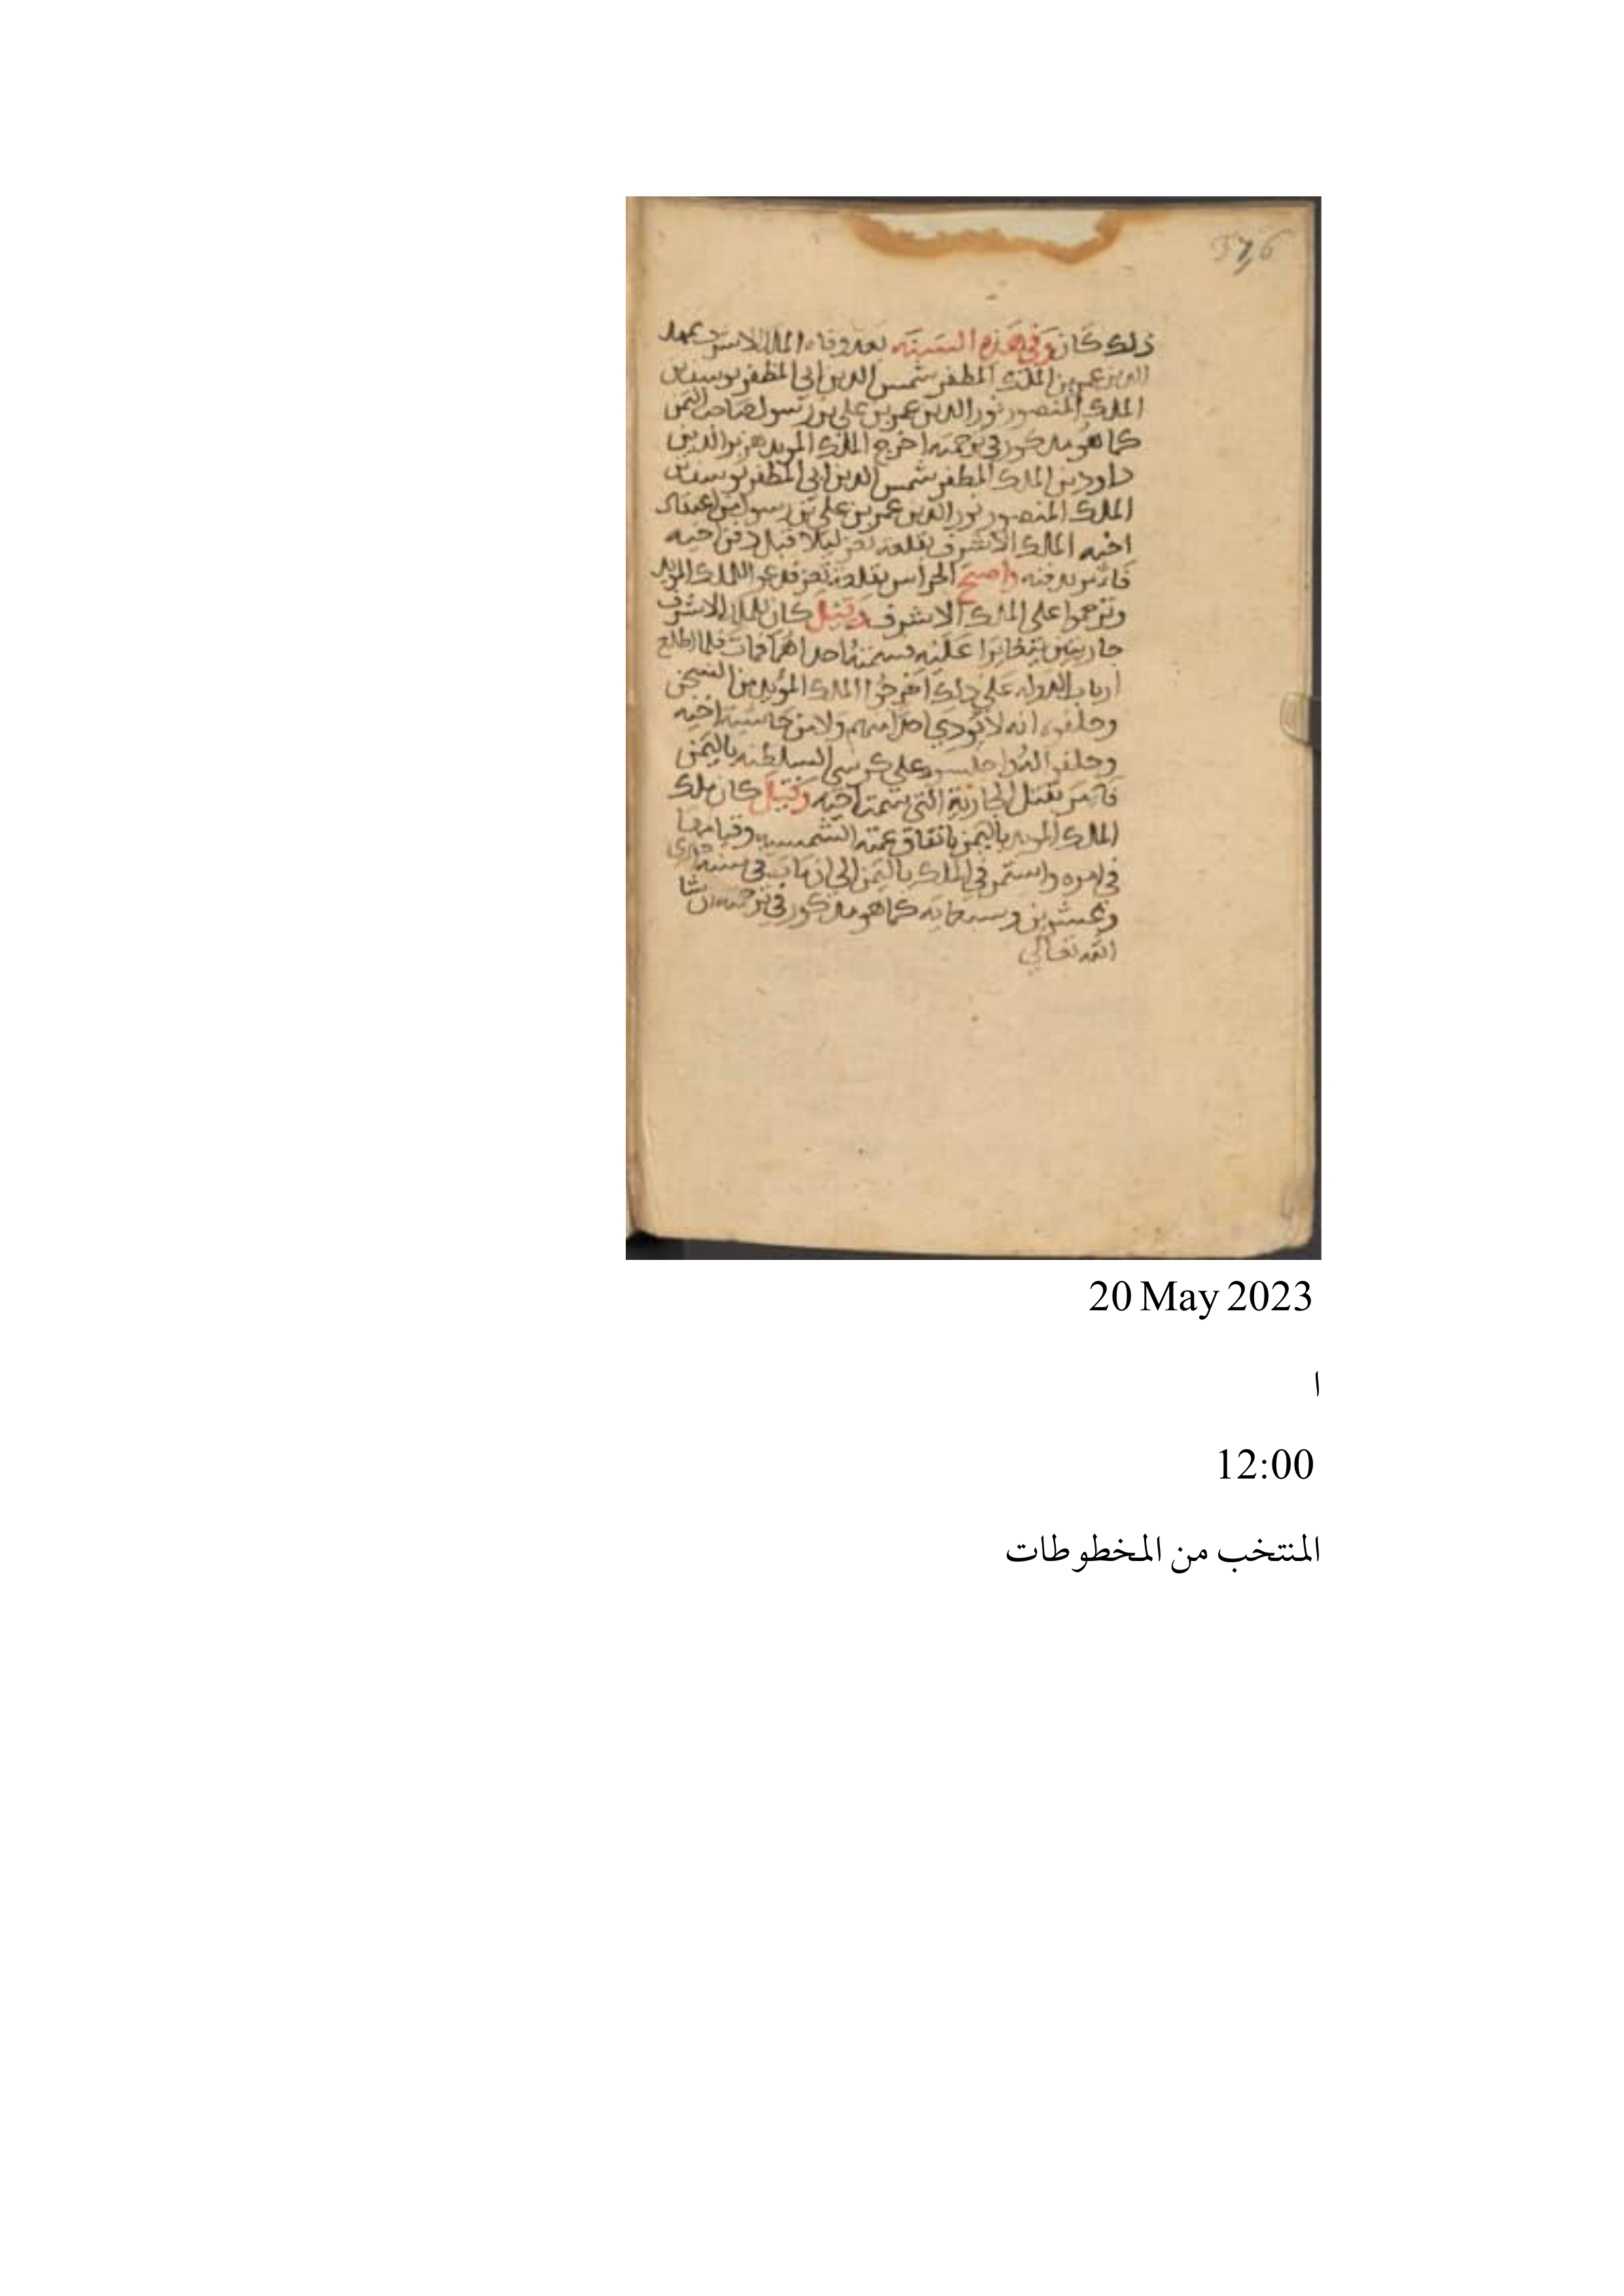 376
ذلك كان وفي هذه السنة بعد وفاة الملك الاشرف ممهد
الدين عمر بن الملك المظفر شمس الدين ابي المظفر يوسف بن
الملك المنصور نور الدين عمر بن علي بن رسول صاحب اليمن
كما هو مذكور في ترجمته اخرج الملك المويد هزبر الدين
داود بن الملك المظفر شمس الدين ابي المظفر يوسف بن
الملك المنصور نور الدين عمر بن علي بن رسول من
اخيه الملك الاشرف بقلعة تعز ليلا قبل دفن اخيه
فامر بدفنه واصبح الحراس بقلعة تعز فدعوا للملك المويد
وترحموا على الملك الاشرف وقيل كان للملك الاشرف
جاريتين عليه فسمته احداهما فمات فلما اطلع
ارباب الدوله علي ذلك اخرجوا الملك المؤيد من السجن
وحلفوه انه لا يودي احدا منهم ولا من حاشية اخيه
وحلفوا له واجلسوه علي كرسي السلطنه باليمن
فامر بقتل الجارية التي سمت اخيه وقيل كان ملك
الملك المويد باليمن باتفاق عمته الشمسيه وقيامها
في امره واستمر في الملك باليمن الي ان مات في سنة احدى
وعشرين وسبعمايه كما هو مذكور في ترجمته ان شا
الله تعالي
20 May 2023
ا
12:00
المنتخب من المخطوطات